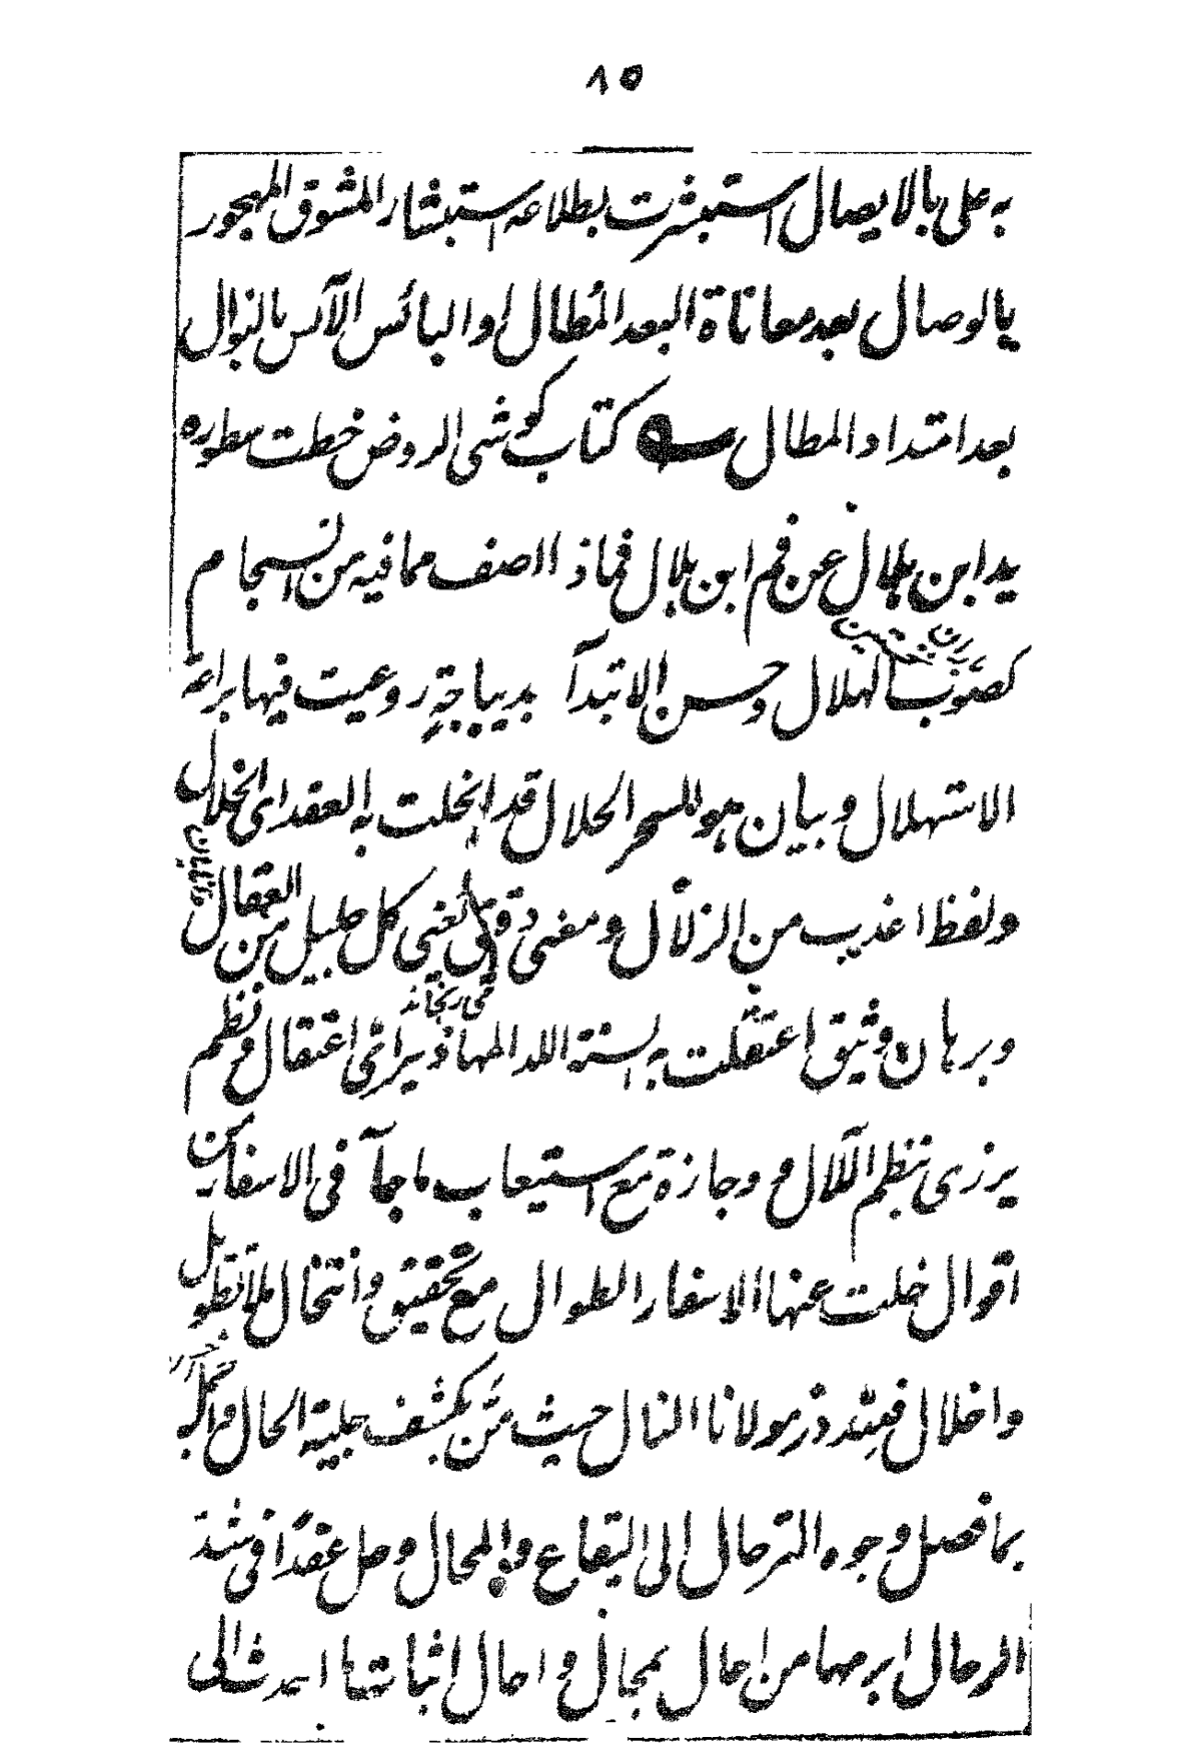 ٨٥
به على بالايصال استبشرت بطلاعه استبشار المشوق المهجور
بالوصال بعد معاناة البعد المُطال او البائس الآيس بالنوال
بعد امتداد المطال كتاب كوشى الروض خطت سطوره
يدا بن هلال عن فم ابن هلال فماذا اصف مما فيه من انسجام
كصَوب الهلال وحسن الابتدآ بديباجةٍ روعيت فيها براعة
الاستهلال وبيان هو السحر الحلال قد انحلت به العقد اى انحلال
ولفظ اعذب من الزلال ومعنى دقيق يغنى كل عليل من العقال
وبرهان وثيق اعتقلت به السنة اللد المهاذير اىّ اعتقال ونظم
يرزى بنظم اللآل ووجازة مع استيعاب ماجآ فى الاسفار من
اقوال خلت عنها الاسفار الطوال مع تحقيق وانتخال بلا تطويل
واخلال فللّه در مولانا النال حيث منّ بكشف جلية الحال
بما فصل وجوه الترحال الى البقاع والمحال وحل عقدًا فى شد
الرحال ابرمها من احال بمحال واحال اثباتها احدث الى